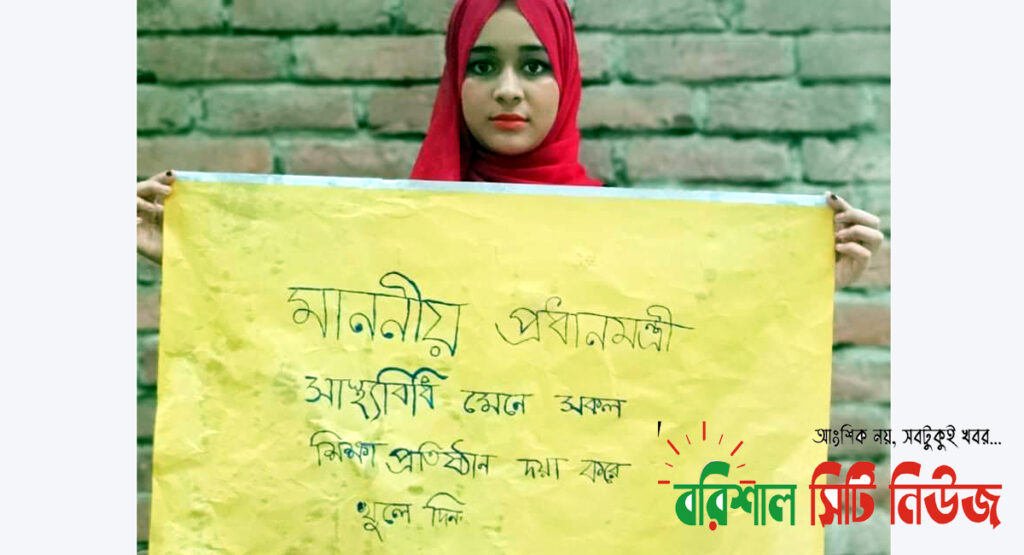 মাননীয় প্রধানমন্ত্রী
সাস্থ্যবিধি মেনে সকল
শিক্ষা প্রতিষ্ঠান দয়া করে
খুলে দিন
আংশিক নয়, সবটুকুই খবর...
বরিশাল সিটি নিউজ